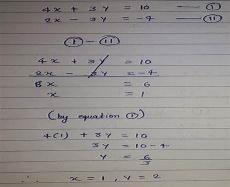 4x + 3y = 10 — ①
2x - 3y = -4 — ⑪
① - ⑪
4x + 3y = 10
2x - 3y = -4
6x = 6
x = 1
(by equation ①)
4(1) + 3y = 10
3y = 10 - 4
y = 6/3
∴ x = 1, y = 2